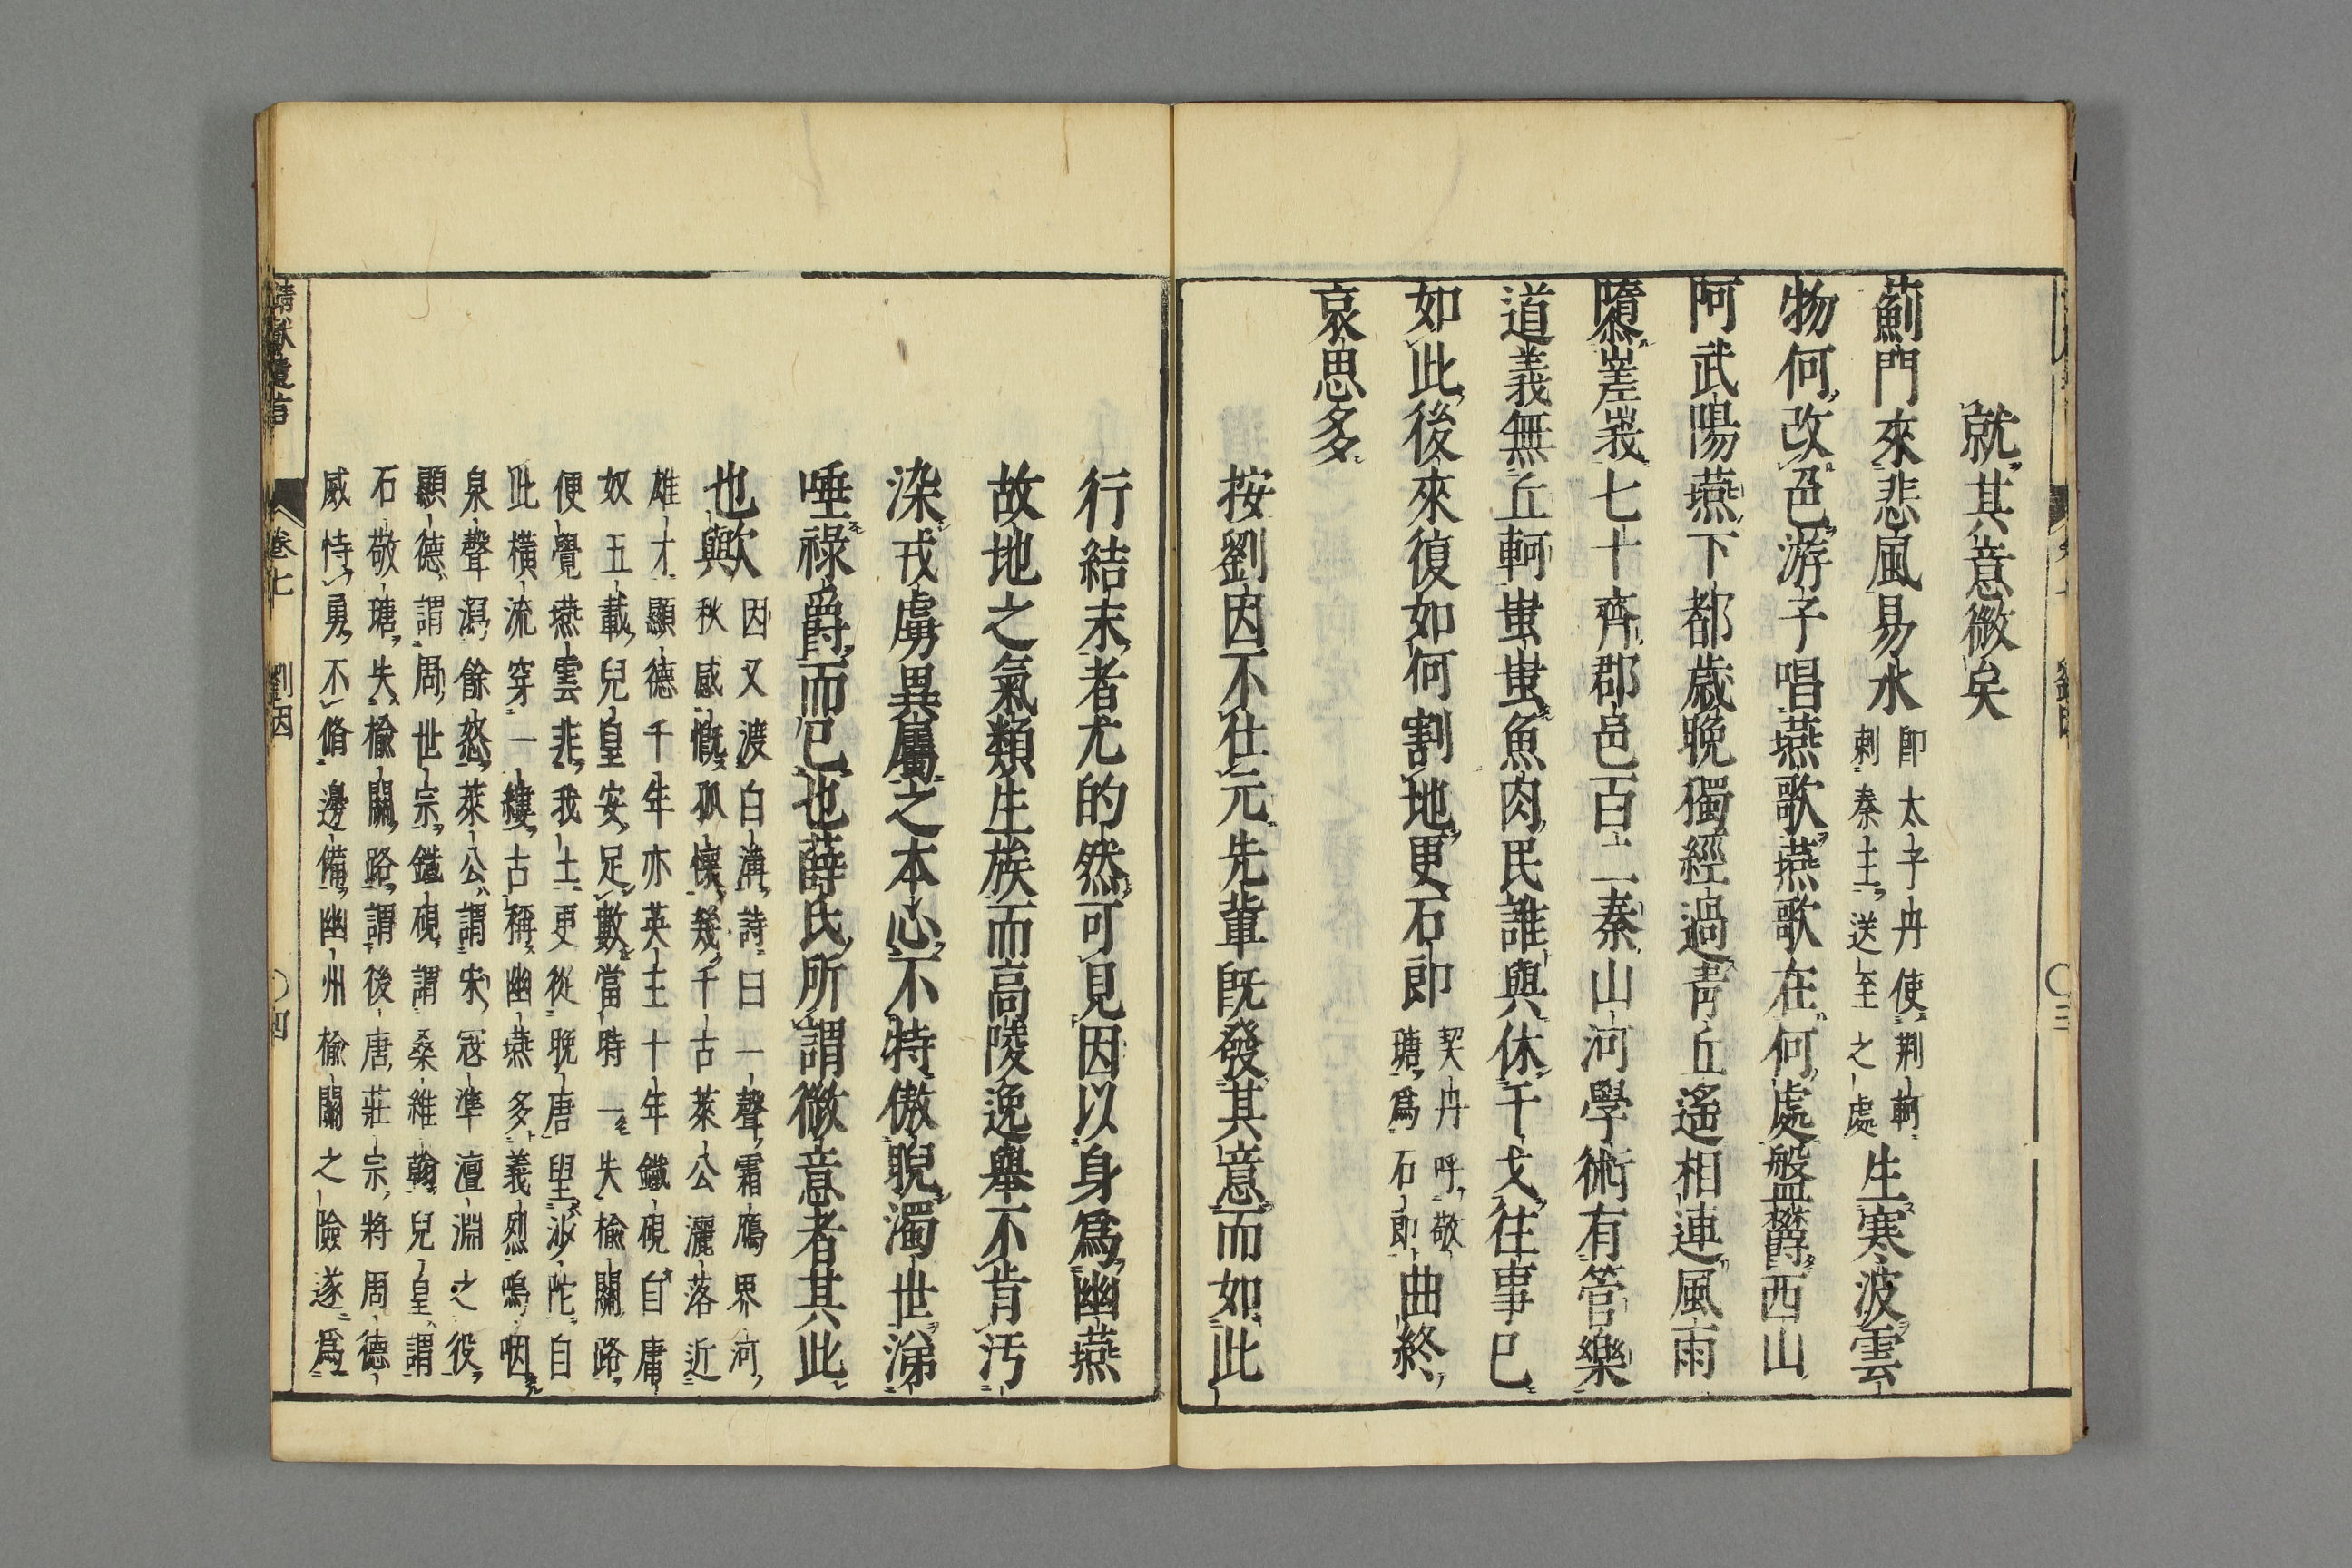 就其意微矣
薊門來悲風易水
即太子丹使荆軻
刺秦王送至之處
生寒波雲
物何改色游子唱燕歌燕歌在何處盤欝西山
阿武陽燕下都歳晩獨經過青丘遙相連風雨
隳嵳峩七十齊郡邑百二秦山河學術有管樂
道義無丘軻蚩蚩魚肉民誰與休干戈往事已
如此後來復如何割地更石郎
契丹呼敬
瑭爲石郎
曲終
哀思多
按劉因不仕元先軰旣發其意而如此
行結末者尤的然可見因以身爲幽燕
故地之氣類生族而高陵逸舉不肯汚
染戎虜異屬之本心不特傲睨濁世涕
唾祿爵而已也薛氏所謂微意者其此
也歟
因又渡白溝詩曰一聲霜鴈界河
秋感慨孤懷幾千古萊公灑落近
雄才顯德千年亦英主十年鐵硯自庸
奴五載兒皇安足數當時一失楡關路
便覺燕雲非我土更從晩唐望沙陀自
此橫流穿一縷古稱幽燕多義烈嗚咽
泉聲瀉餘怒萊公謂宋冦準澶淵之役
顯德謂周世宗鐵硯謂桑維翰兒皇謂
石敬瑭失楡關路謂後唐莊宗將周德
威恃勇不脩邊備幽州楡關之險遂爲
靖献遺言
卷七
劉因
〇四
〇三